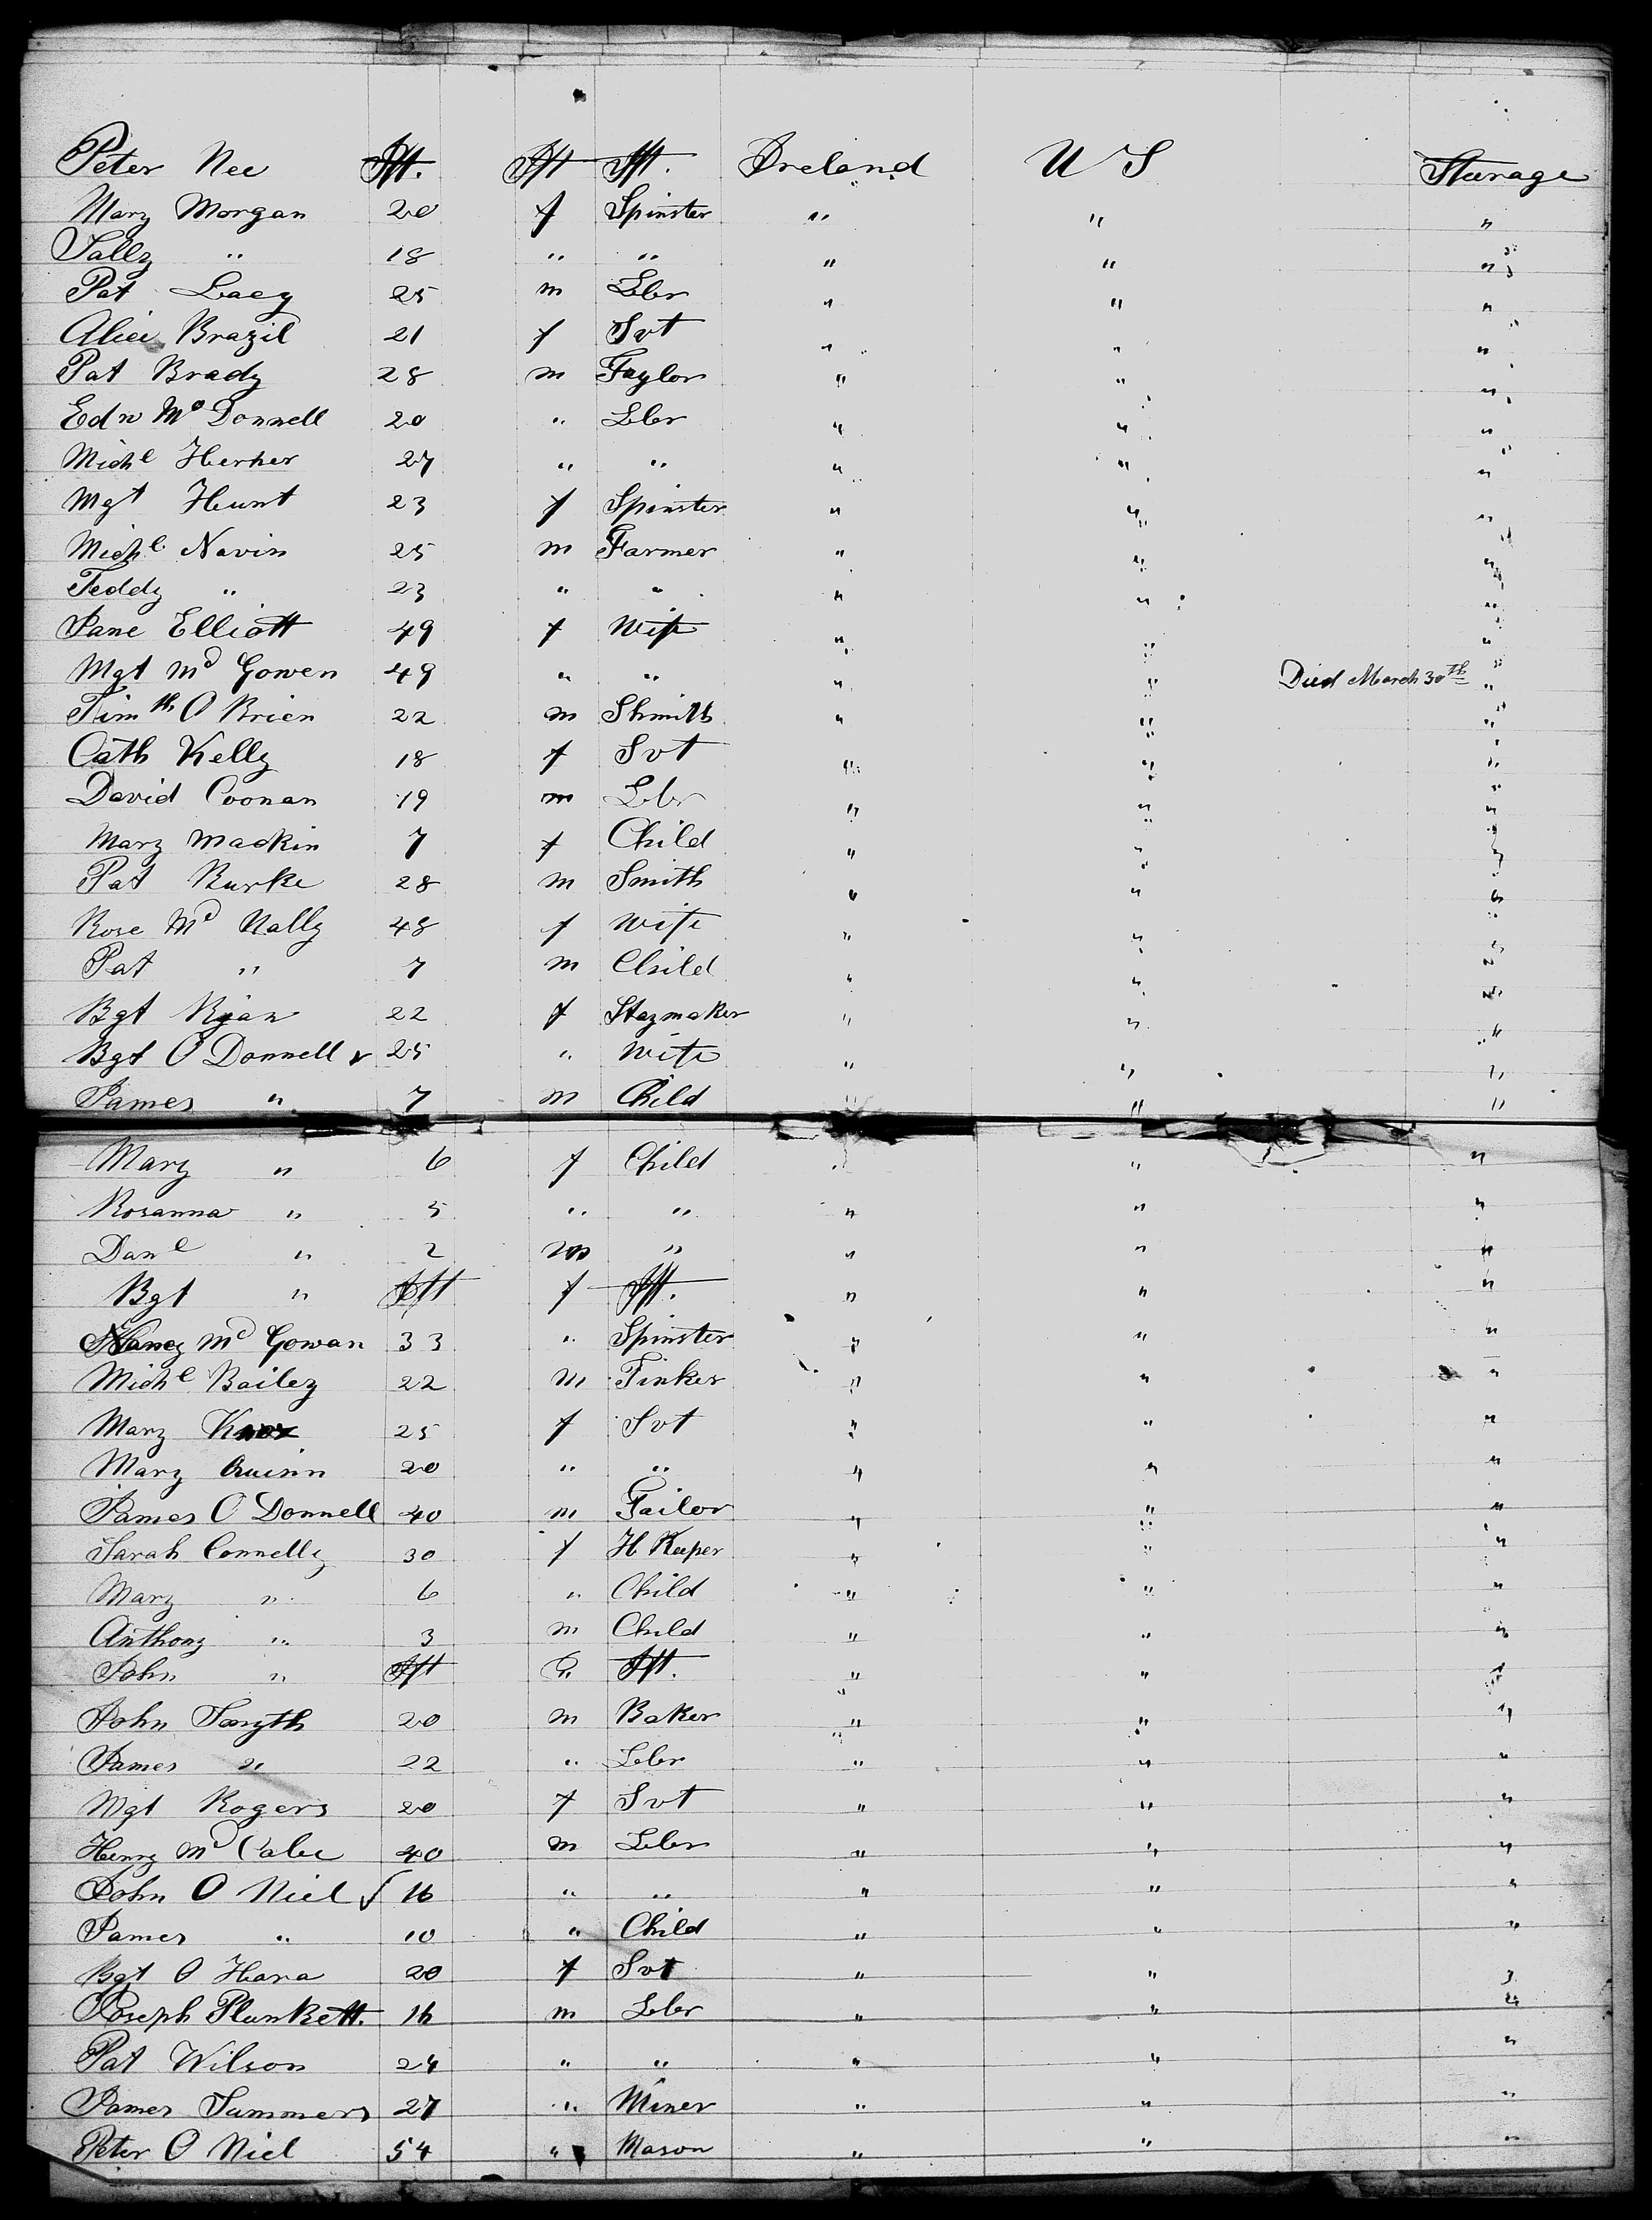 Peter Nee Ift. Ift Ift. Ireland U S Steerage
Mary Morgan 20 f Spinster " " "
Sally " 18 " " " " "
Pat Lacy 25 m Lbr " " "
Alice Brazil 21 f Svt " " "
Pat Brady 28 m Taylor " " "
Edw Mc Donnell 20 " Lbr " " "
Michl Herher 27 " " " " "
Mgt Hunt 23 f Spinster " " "
Michl Navin 25 m Farmer " " "
Teddy " 23 " " " " "
Jane Elliott 49 f Wife " " "
Mgt Mc Gowen 49 " " " " Died March 30th "
Timth O Brien 22 m Shmith " " "
Cath Kelly 18 f Svt " " "
David Coonan 19 m Lbr " " "
Mary Mackin 7 f Child " " "
Pat Burke 28 m Smith " " "
Rose Mc Nally 48 f Wife " " "
Pat " 7 m Child " " "
Bgt Ryan 22 f Staymaker " " "
Bgt O Donnell 25 " Wife " " "
James " 7 m Child " " "
Mary " 6 f Child " " "
Rosanna " 5 " " " " "
Danl " 2 m " " " "
Bgt " Ift f Ift. " " "
Nancy Mc Gowan 33 " Spinster " " "
Michl Bailey 22 m Tinker " " "
Mary Knox 25 f Svt " " "
Mary Quinn 20 " " " " "
James O Donnell 40 m Tailor " " "
Sarah Connelly 30 f H Keeper " " "
Mary " 6 " Child " " "
Anthony " 3 m Child " " "
John " Ift " Ift. " " "
John Smyth 20 m Baker " " "
James " 22 " Lbr " " "
Mgt Rogers 20 f Svt " " "
Henry Mc Cabe 40 m Lbr " " "
John O Niel 16 " " " " "
James " 10 " Child " " "
Bgt O Hara 20 f Svt " " "
Joseph Plunkett. 16 m Lbr " " "
Pat Wilson 24 " " " " "
James Summers 27 " Miner " " "
Peter O Niel 54 " Mason " " "